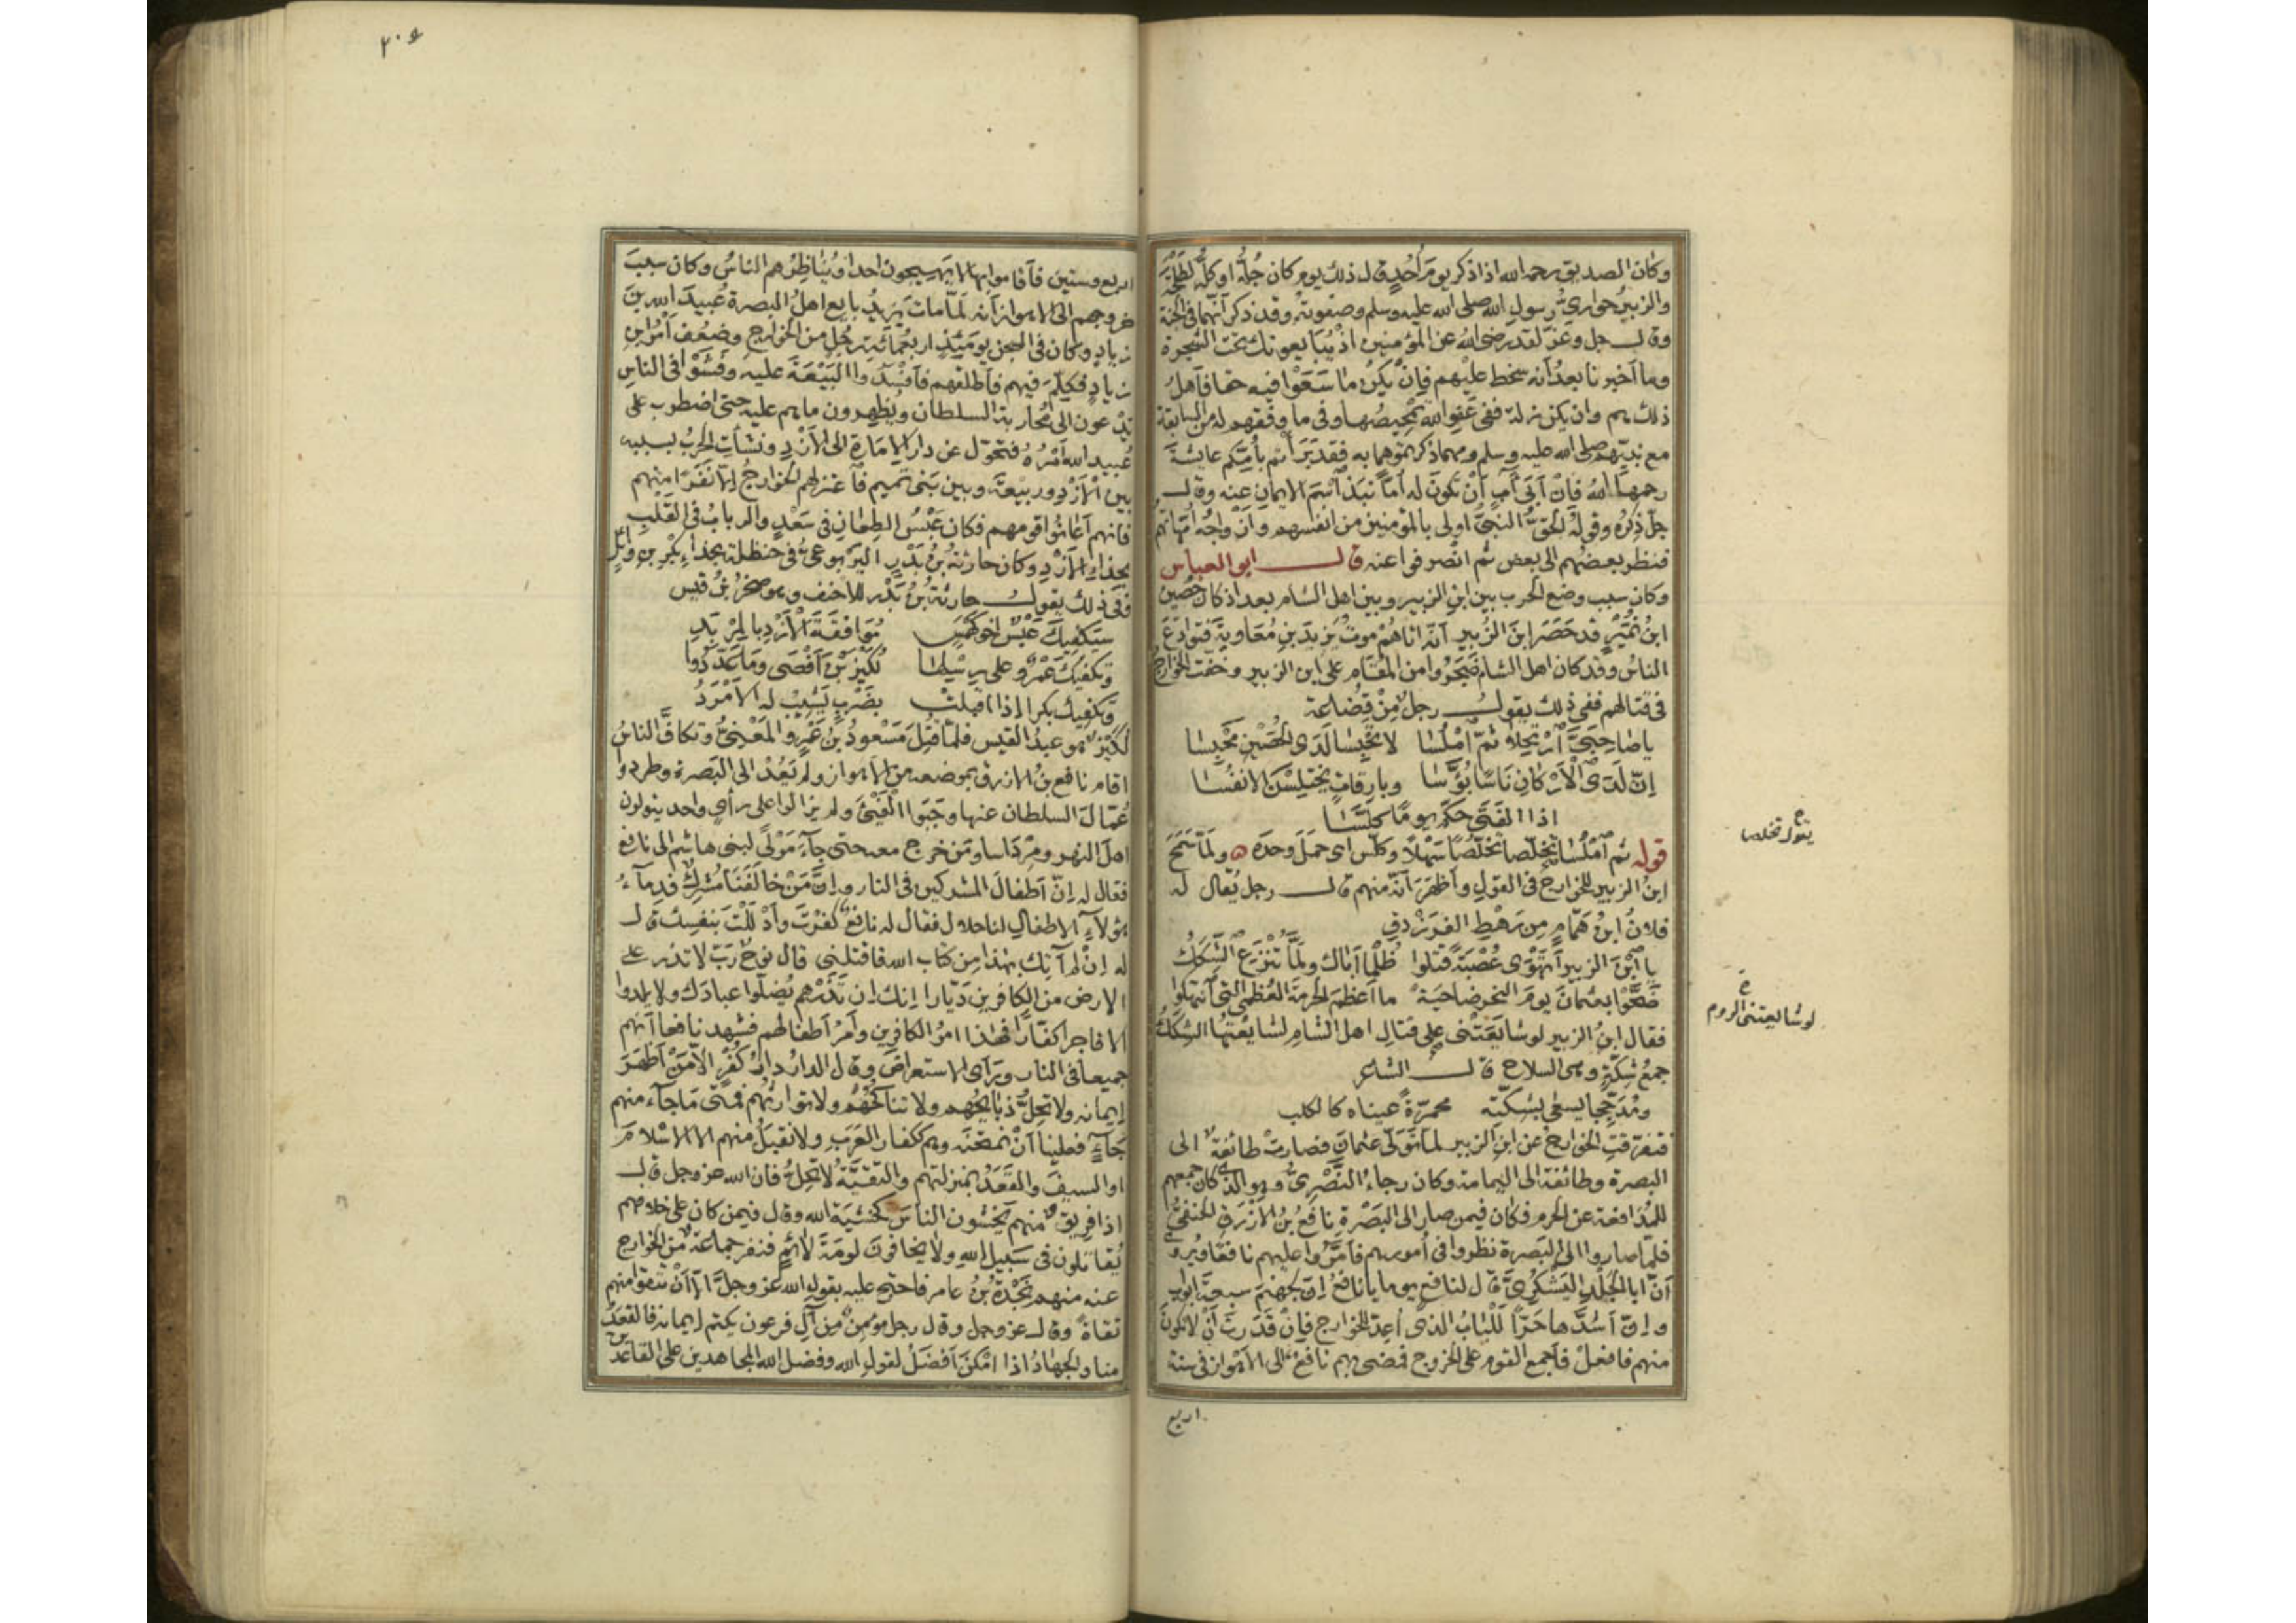 وكان الصديق رحمه الله اذا ذكر يوم أحد قال ذلك يوم كان جله او كله لطلحة
والزبير حواري رسول الله صلى الله عليه وسلم وصفوته وقد ذكر انهما في الجنة
وقال جل وعز لقد رضي الله عن المؤمنين اذ يبايعونك تحت الشجرة
وما اخبرنا بعد انه سخط عليهم فان يكن ما سعوا فيه حقا فاهل
ذلك هم وان يكن زلة ففي عفو الله تمحيصها وفي ما وفقهم له من السابقة
مع نبيهم صلى الله عليه وسلم ومهما ذكرتموهما به فقد بدأتم بأمكم عايشة
رحمها الله فان ابى آب أن تكون له أما نبذ اسم الايمان عنه وقال
جل ذكره وقوله الحق النبي اولى بالمؤمنين من انفسهم وازواجه امهاتهم
فنظر بعضهم الى بعض ثم انصرفوا عنه قال ابو العباس
وكان سبب وضع الحرب بين ابن الزبير وبين اهل الشام بعد اذ كان حصين
ابن نمير قد حصر ابن الزبير أنه اتاهم موت يزيد بن معاوية فتوادع
الناس وقد كان اهل الشام ضجروا من المقام على ابن الزبير وخفت الخوارج
في قتالهم ففي ذلك يقول رجل من قضاعة
يا صاحبي ارتحلا ثم املسا لا تحبسا لدى الحصين محبسا
ان لدى الاركان ناسا بؤسا وبارقات يختلسن الانفسا
اذا الفتى حكم يوما كلسا
قوله ثم املسا تخلصا تخلصا سهلا وكلس اى حمل وجد ولما سمح
ابن الزبير للخوارج في القول واظهر انه منهم قال رجل يقال له
فلان ابن همام من رهط الفرزدق
يا ابن الزبير اتهوى عصبة قتلوا ظلما اباك ولما تنزع الشكك
ضحوا بعثمان يوم النحر ضاحية ما اعظم الحرمة العظمى التي انتهكوا
فقال ابن الزبير لو شايعتني على قتال اهل الشام لشايعتها الشكك
جمع شكة وهي السلاح قال الشاعر
ومدججا يسعى بشكته محمرة عيناه كالكلب
فتفرقت الخوارج عن ابن الزبير لما تولى عثمان فصارت طائفة الى
البصرة وطائفة الى اليمامة وكان رجاء النصرى وهو الذي كان جمعهم
للمدافعة عن الحرم فكان فيمن صار الى البصرة نافع بن الازرق الحنفي
فلما صاروا الى البصرة نظروا في أمورهم فأمروا عليهم نافعا ويروى
أن ابا الجلد اليشكرى قال لنافع يوما يا نافع إن لجهنم سبعة ابواب
وإن اشدها حرا للباب الذى أعد للخوارج فان قدرت أن لا تكون
منهم فافعل فأجمع القوم على الخروج فمضى بهم نافع الى الاهواز في سنة
اربع
يقول تخلصا
لو شايعتني الروم
٢٠٤
اربع وستين فأقاموا بها لا يهيجون احدا ويناظرهم الناس وكان سبب
خروجهم الى الاهواز أنه لما مات يزيد بايع اهل البصرة عبيد الله بن
زياد وكان في السجن يومئذ اربعمائة رجل من الخوارج وضعف أمر ابن
زياد فكلم فيهم فأطلقهم فأفسدوا البيعة عليه وفشوا في الناس
يدعون الى محاربة السلطان ويظهرون ما هم عليه حتى اضطرب على
عبيد الله أمره فتحول عن دار الامارة الى الأزد ونشأت الحرب بسببه
بين الأزد وربيعة وبين بني تميم فاعتزلهم الخوارج إلا نفرا منهم
فانهم اعانوا قومهم فكان عبس الطعان في سعد والرباب في القلب
بحذاء الأزد وكان حارثة بن بدر اليربوعي في حنظلة بحذاء بكر بن وائل
ففي ذلك يقول حارثة بن بدر للاحنف وهو صخر بن قيس
سيكفيك عبس اخو كهمس مواقفة الأزد بالمربد
وتكفيك عمرو على رسلها لكيز بن أفصى وما عددوا
وتكفيك بكرا اذا اقبلت بضرب يشيب له الأمرد
لكيز هو عبد القيس فلما قتل مسعود بن عمرو المعنى وتكاف الناس
اقام نافع بن الازرق بموضعه من الاهواز ولم يعد الى البصرة وطردوا
عمال السلطان عنها وجبوا الفيئ ولم يزالوا على رأى واحد يتولون
اهل النهر ومرداسا ومن خرج معه حتى جاء مولى لبني هاشم الى نافع
فقال له إن أطفال المشركين في النار وإن من خالفنا مشرك فدماء
هؤلاء الاطفال لنا حلال فقال له نافع كفرت وأدللت بنفسك قال
له إن لم آتك بهذا من كتاب الله فاقتلني قال نوح رب لا تذر على
الارض من الكافرين ديارا إنك إن تذرهم يضلوا عبادك ولا يلدوا
الا فاجرا كفارا فهذا امر الكافرين وأمر أطفالهم فشهد نافع انهم
جميعا في النار ورأى الاستعراض وقال الدار دار كفر الا من أظهر
إيمانه ولا تحل ذبائحهم ولا تناكحهم ولا توارثهم فمتى ما جاء منهم
جاء فعلينا أن نمتحنه وهم ككفار العرب ولا نقبل منهم الا الاسلام
او السيف والقعد بمنزلتهم والتقية لا تحل فان الله عز وجل قال
اذا فريق منهم يخشون الناس كخشية الله وقال فيمن كان على خلافهم
يقاتلون في سبيل الله ولا يخافون لومة لائم فنفر جماعة من الخوارج
عنه منهم نجدة بن عامر فاحتج عليه بقول الله عز وجل الا أن تتقوا منهم
تقاة وقال عز وجل وقال رجل مؤمن من آل فرعون يكتم إيمانه فالقعد
منا والجهاد اذا امكن أفضل لقول الله وفضل الله المجاهدين على القاعدين